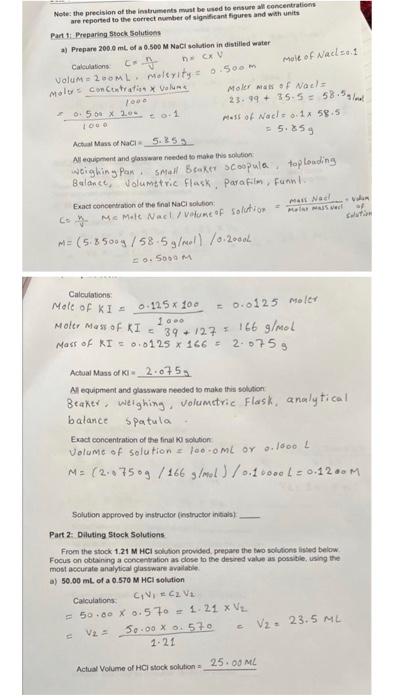 Note: the precision of the instruments must be used to ensure all concentrations
are reported to the correct number of significant figures and with units
Part 1: Preparing Stock Solutions
a) Prepare 200.0 mL of a 0.500 M NaCl solution in distilled water
Calculations: C = n/V n = C x V mole of Nacl = 0.1
Volum = 200 ML, Molerity = 0.500 m
Moles = Concentration x Volume Moler mass of Nacl =
/ 1000 23.99 + 35.5 = 58.5 g/mol
= 0.500 x 200 / 1000 = 0.1 Mass of Nacl = 0.1 x 58.5
= 5.85g
Actual Mass of NaCl = 5.85g
All equipment and glassware needed to make this solution:
Weighing Pan, small Beaker scoopula, top loading
Balance, Volumetric Flask, Parafilm, Funnl.
Exact concentration of the final NaCl solution:
C = n/V M = Mole Nacl / volume of solution = Mass Nacl / Molar mass Nacl ÷ Volum of solution
M = (5.8500g / 58.5 g/mol) / 0.2000L
= 0.5000 M
Calculations:
Mole of KI = 0.125 x 100 / 1000 = 0.0125 moles
Moler Mass of KI = 39 + 127 = 166 g/mol
Mass of KI = 0.0125 x 166 = 2.075 g
Actual Mass of KI = 2.075g
All equipment and glassware needed to make this solution:
Beaker, weighing, volumetric Flask, analytical
balance spatula.
Exact concentration of the final KI solution:
Volume of solution = 100.0ML or 0.1000 L
M = (2.0750g / 166 g/mol) / 0.10000 L = 0.1200 M
Solution approved by instructor (instructor initials):
Part 2: Diluting Stock Solutions
From the stock 1.21 M HCl solution provided, prepare the two solutions listed below.
Focus on obtaining a concentration as close to the desired value as possible, using the
most accurate analytical glassware available.
a) 50.00 mL of a 0.570 M HCl solution
Calculations: C1V1 = C2V2
= 50.00 x 0.570 = 1.21 x V2
= V2 = 50.00 x 0.570 / 1.21 = V2 = 23.5 ML
Actual Volume of HCl stock solution = 25.00 ML